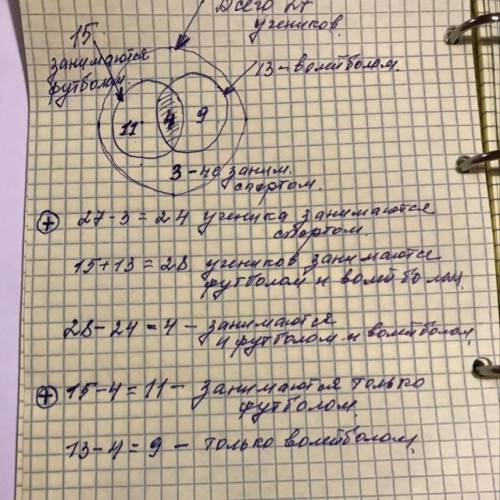 Всего 27
учеников.
15
занимаются
футболом.
13 - волейболом.
11 4 9
3 - не заним.
спортом.
+ 27 - 3 = 24 ученика занимаются
спортом.
15 + 13 = 28 учеников занимаются
футболом и волейболом.
28 - 24 = 4 - занимаются
и футболом и волейболом.
+ 15 - 4 = 11 - занимаются только
футболом.
13 - 4 = 9 - только волейболом.